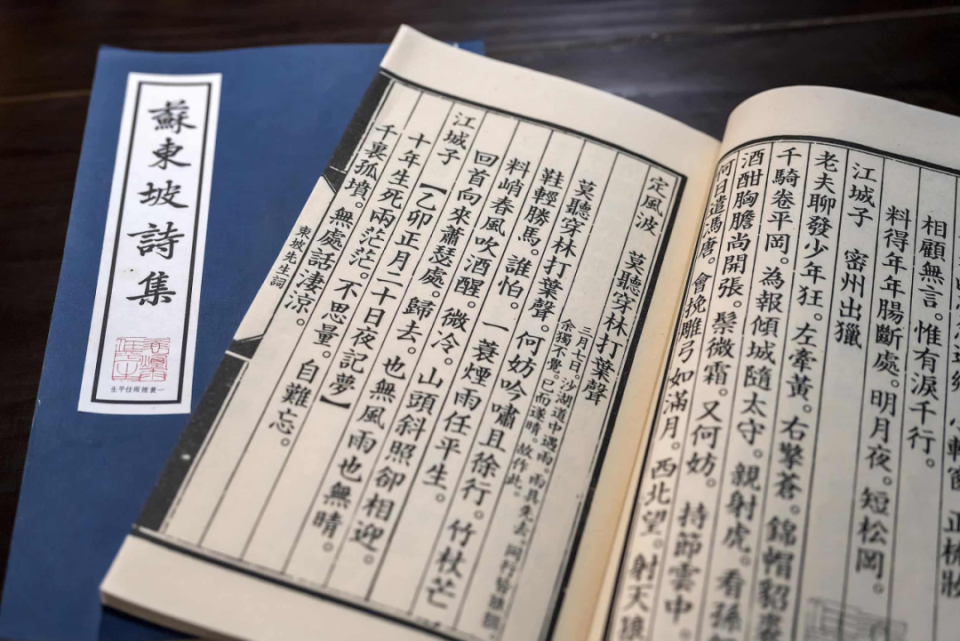 蘇東坡詩集
一蓑煙雨任平生
小軒窗 正梳妝
相顧無言。惟有淚千行。
料得年年腸斷處。明月夜。短松岡。
江城子 密州出獵
老夫聊發少年狂。左牽黃。右擎蒼。錦帽貂裘
千騎卷平岡。為報傾城隨太守。親射虎。看孫
酒酣胸膽尚開張。鬢微霜。又何妨。持節雲中
何日遣馮唐。會挽雕弓如滿月。西北望。射天狼
定風波 莫聽穿林打葉聲
三月七日。沙湖道中遇雨。雨具先去。同行皆狼狽
余獨不覺。已而遂晴。故作此。
莫聽穿林打葉聲。何妨吟嘯且徐行。竹杖芒
鞋輕勝馬。誰怕。一蓑煙雨任平生。
料峭春風吹酒醒。微冷。山頭斜照卻相迎。
回首向來蕭瑟處。歸去。也無風雨也無晴。
江城子 【乙卯正月二十日夜記夢】
十年生死兩茫茫。不思量。自難忘。
千裏孤墳。無處話淒涼。
東坡先生詞